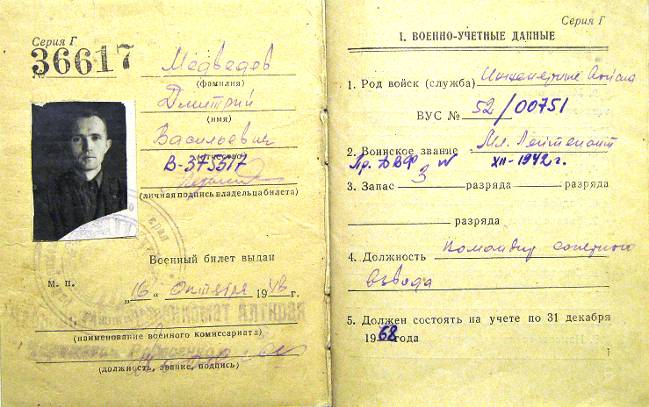 Серия Г
36617
Медведев
(фамилия)
Дмитрий
(имя)
Васильевич
В-375517
(личная подпись владельца билета)
Военный билет выдан
М. п.
„16“ октября 1948г.
(наименование военного комиссариата)
(должность, звание, подпись)
Серия Г
I. ВОЕННО-УЧЕТНЫЕ ДАННЫЕ
1. Род войск (служба) Инженерные войска
ВУС № 52/00751
2. Воинское звание Мл. Лейтенант
Пр. ДВФ № XII-1942 г.
3. Запас 3 разряда разряда
разряда
4. Должность Командир саперного
взвода
5. Должен состоять на учете по 31 декабря
1968 года